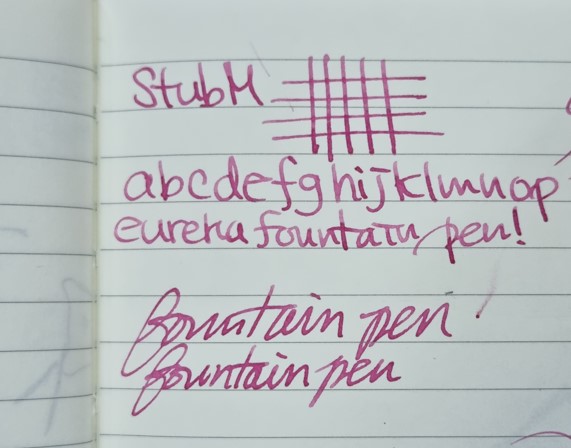 Stub M
abcdefghijklmnop
eureka fountain pen!
fountain pen
fountain pen